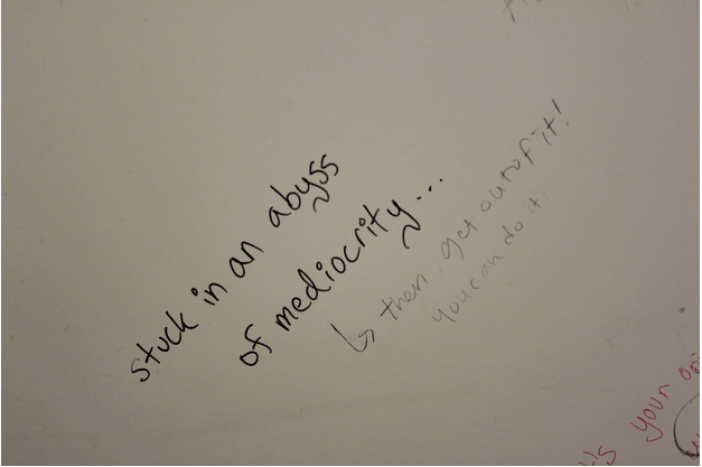 stuck in an abyss
of mediocrity...
↳ then get out of it!
you can do it.
's your